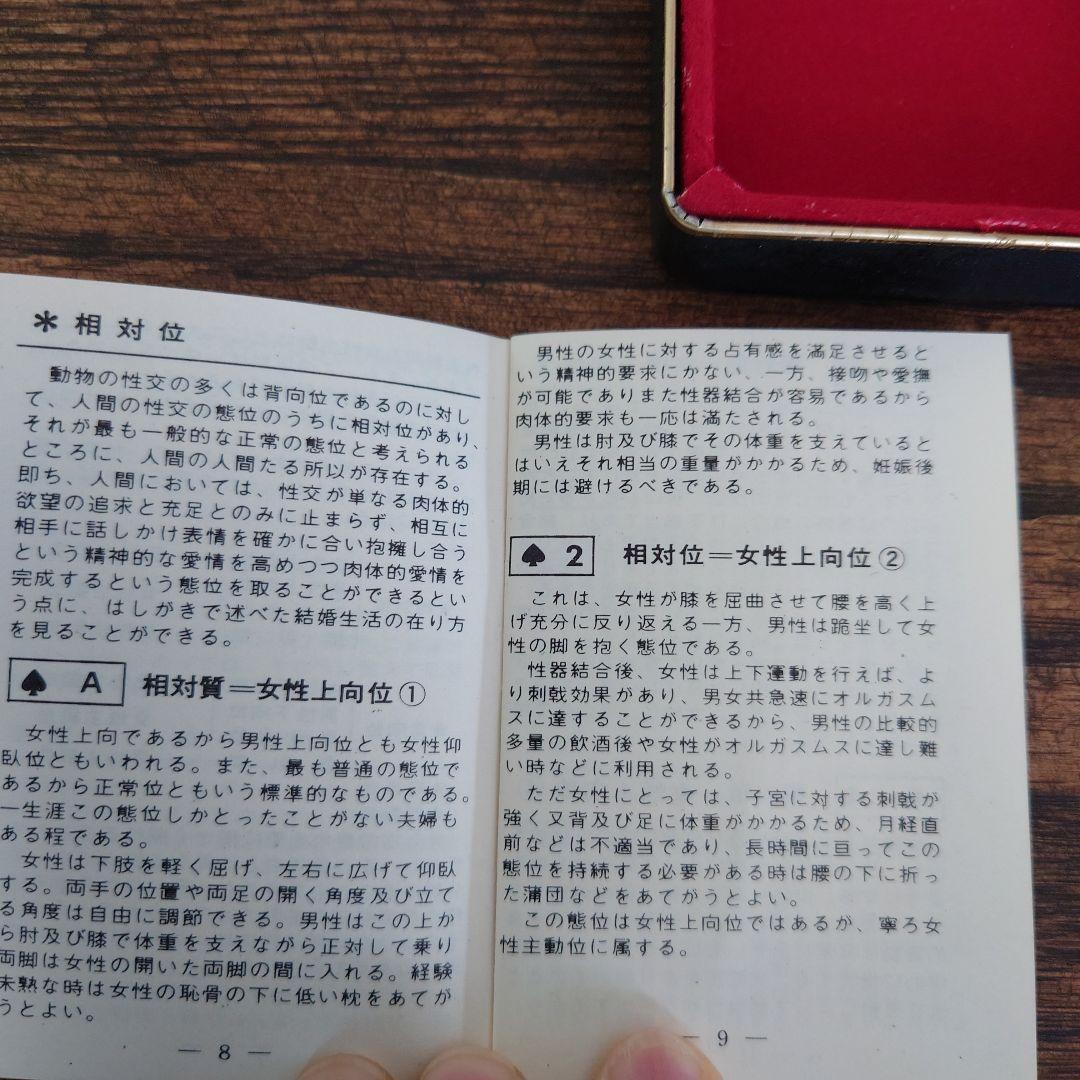 ＊相対位
動物の性交の多くは背向位であるのに対し
て、人間の性交の態位のうちに相対位があり、
それが最も一般的な正常の態位と考えられる
ところに、人間の人間たる所以が存在する。
即ち、人間においては、性交が単なる肉体的
欲望の追求と充足とのみに止まらず、相互に
相手に話しかけ表情を確かに合い抱擁し合う
という精神的な愛情を高めつつ肉体的愛情を
完成するという態位を取ることができるとい
う点に、はしがきで述べた結婚生活の在り方
を見ることができる。
♠ A 相対質＝女性上向位①
女性上向であるから男性上向位とも女性仰
臥位ともいわれる。また、最も普通の態位で
あるから正常位ともいう標準的なものである。
一生涯この態位しかとったことがない夫婦も
ある程である。
女性は下肢を軽く屈げ、左右に広げて仰臥
する。両手の位置や両足の開く角度及び立て
る角度は自由に調節できる。男性はこの上か
ら肘及び膝で体重を支えながら正対して乗り
両脚は女性の開いた両脚の間に入れる。経験
未熟な時は女性の恥骨の下に低い枕をあてが
うとよい。
— 8 —
男性の女性に対する占有感を満足させると
いう精神的要求にかない、一方、接吻や愛撫
が可能でありまた性器結合が容易であるから
肉体的要求も一応は満たされる。
男性は肘及び膝でその体重を支えていると
はいえそれ相当の重量がかかるため、妊娠後
期には避けるべきである。
♠ 2 相対位＝女性上向位②
これは、女性が膝を屈曲させて腰を高く上
げ充分に反り返える一方、男性は跪坐して女
性の脚を抱く態位である。
性器結合後、女性は上下運動を行えば、よ
り刺戟効果があり、男女共急速にオルガスム
スに達することができるから、男性の比較的
多量の飲酒後や女性がオルガスムスに達し難
い時などに利用される。
ただ女性にとっては、子宮に対する刺戟が
強く又背及び足に体重がかかるため、月経直
前などは不適当であり、長時間に亘ってこの
態位を持続する必要がある時は腰の下に折っ
た蒲団などをあてがうとよい。
この態位は女性上向位ではあるが、寧ろ女
性主動位に属する。
— 9 —